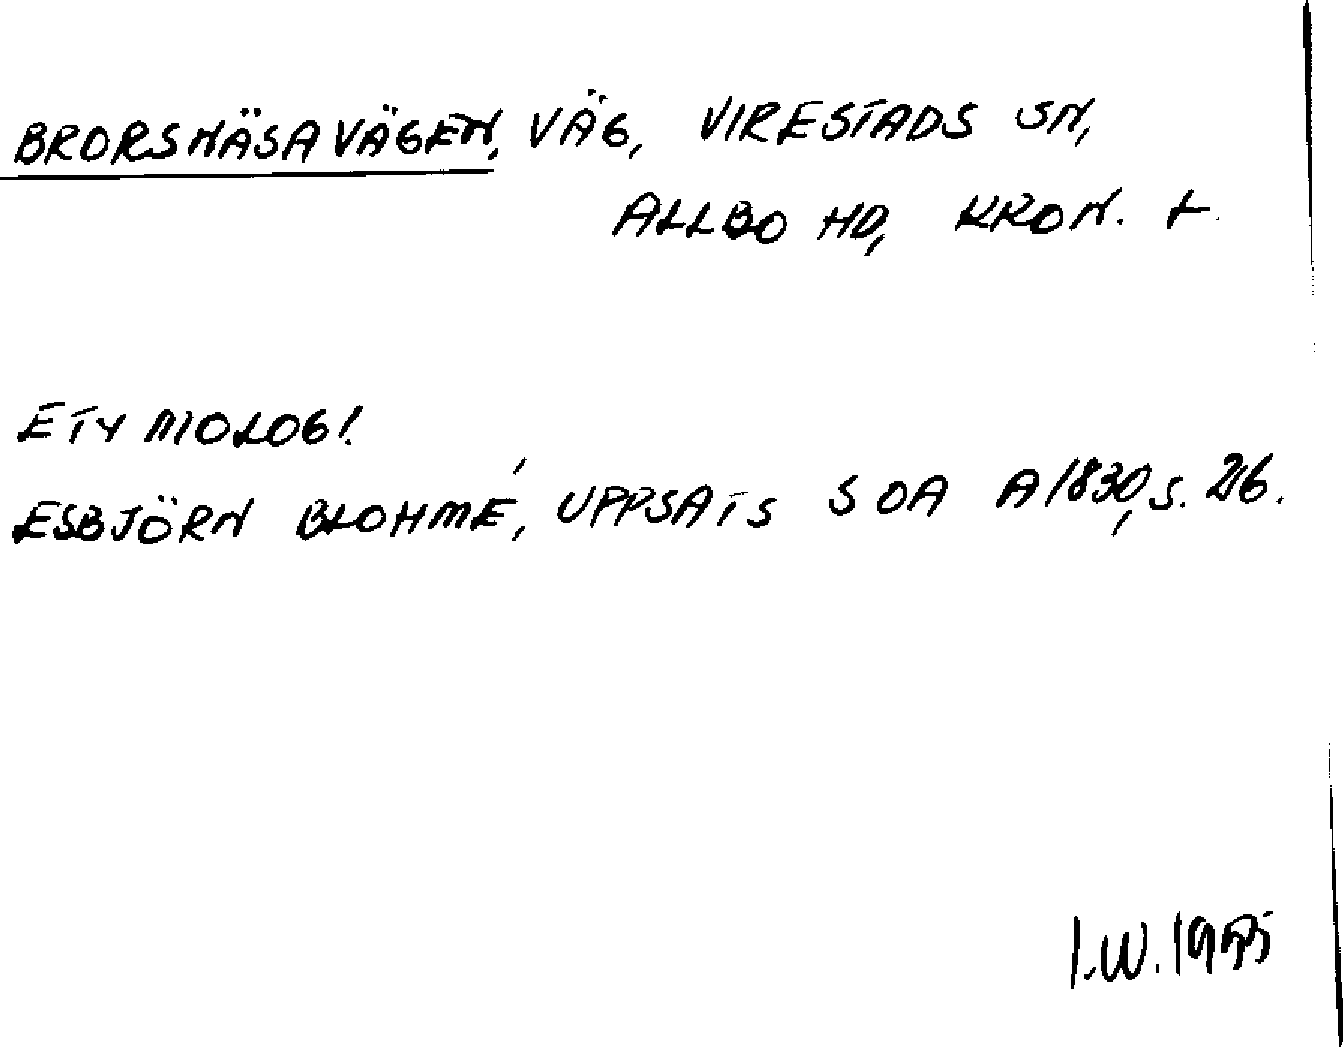 BRORSNÄSAVÄGEN, VÄG, VIRESTADS SN,
ALLBO HD, KRON. L.
ETYMOLOGI.
ESBJÖRN BLOHMÉ, UPPSATS SOA A1830, S. 26.
I.W.